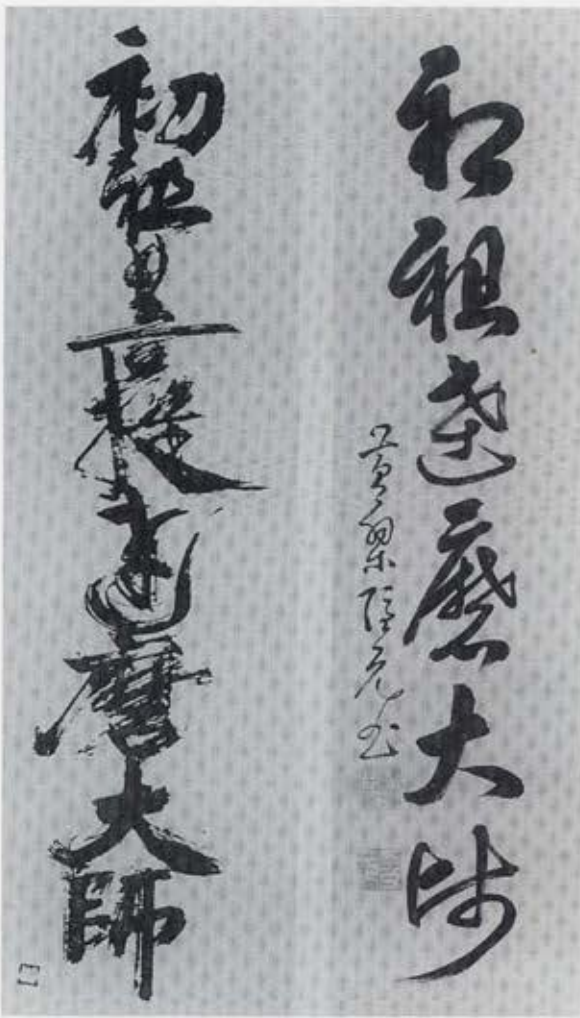 初祖達磨大師
黄檗隠元書
初祖菩提達磨大師